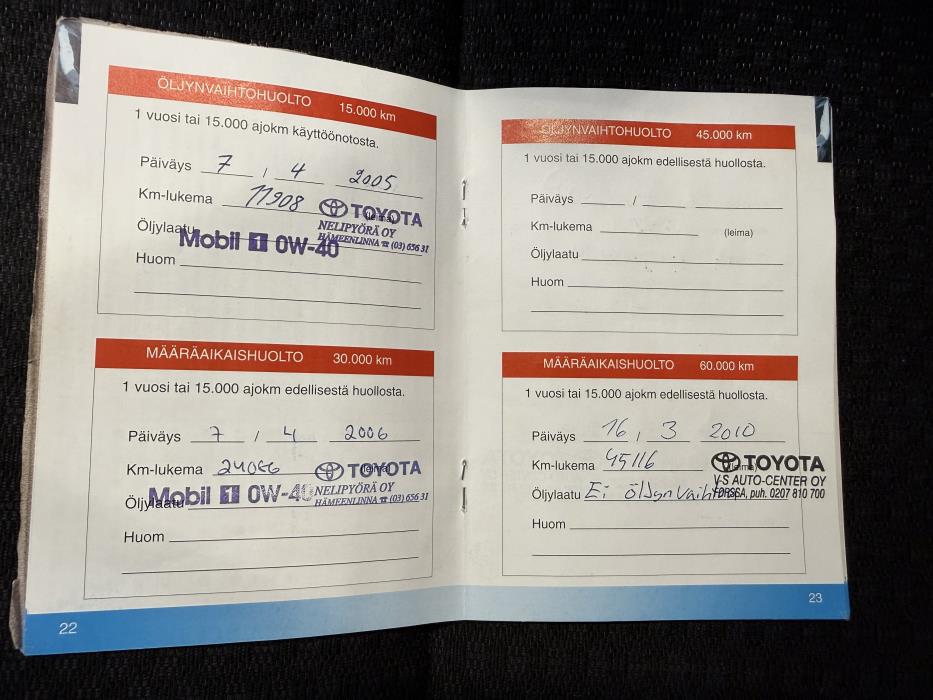 ÖLJYNVAIHTOHUOLTO 15.000 km
1 vuosi tai 15.000 ajokm käyttöönotosta.
Päiväys 7 / 4 2005
Km-lukema 11908 (leima)
TOYOTA
NELIPYÖRÄ OY
HÄMEENLINNA ☎ (03) 656 31
Öljylaatu Mobil 1 0W-40
Huom
MÄÄRÄAIKAISHUOLTO 30.000 km
1 vuosi tai 15.000 ajokm edellisestä huollosta.
Päiväys 7 / 4 2006
Km-lukema 24066 (leima)
TOYOTA
NELIPYÖRÄ OY
HÄMEENLINNA ☎ (03) 656 31
Öljylaatu Mobil 1 0W-40
Huom
22
ÖLJYNVAIHTOHUOLTO 45.000 km
1 vuosi tai 15.000 ajokm edellisestä huollosta.
Päiväys /
Km-lukema (leima)
Öljylaatu
Huom
MÄÄRÄAIKAISHUOLTO 60.000 km
1 vuosi tai 15.000 ajokm edellisestä huollosta.
Päiväys 16 / 3 2010
Km-lukema 45116 (leima)
TOYOTA
V-S AUTO-CENTER OY
FORSSA, puh. 0207 810 700
Öljylaatu Ei öljynvaihtoa
Huom
23